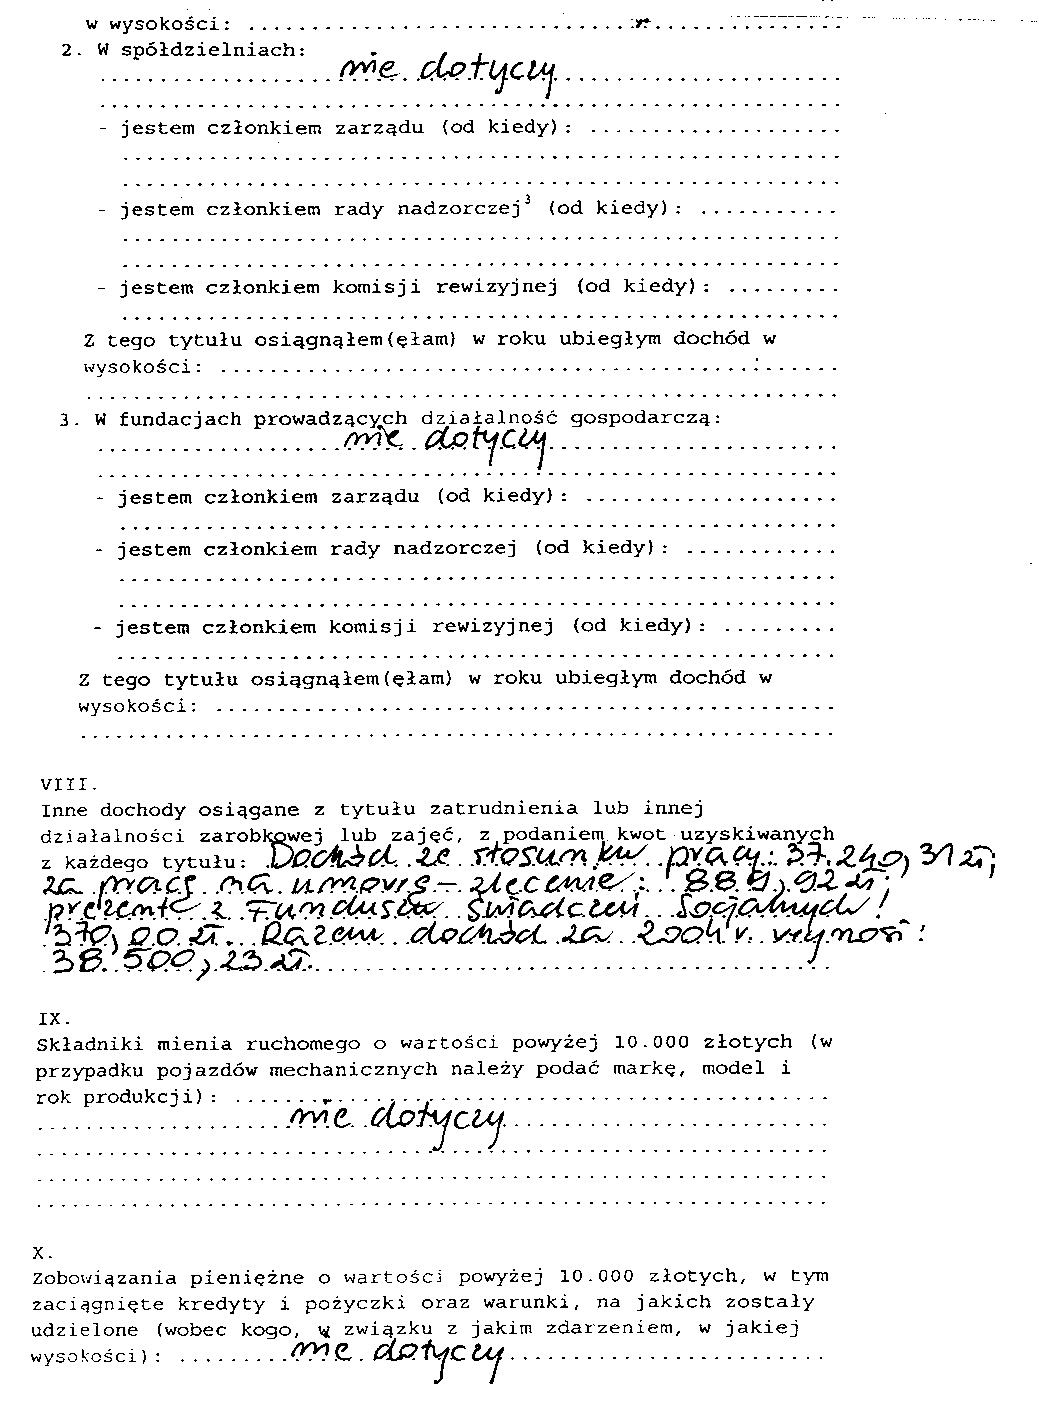 w wysokości: ..................................................
2. W spółdzielniach:
................... nie dotyczy .......................
..............................................................
- jestem członkiem zarządu (od kiedy): ....................
............................................................
............................................................
- jestem członkiem rady nadzorczej³ (od kiedy): ...........
............................................................
............................................................
- jestem członkiem komisji rewizyjnej (od kiedy): .........
............................................................
Z tego tytułu osiągnąłem(ęłam) w roku ubiegłym dochód w
wysokości: ..................................................
...............................................................
3. W fundacjach prowadzących działalność gospodarczą:
.................... nie dotyczy .......................
..............................................................
- jestem członkiem zarządu (od kiedy): ....................
............................................................
- jestem członkiem rady nadzorczej (od kiedy): ............
............................................................
............................................................
- jestem członkiem komisji rewizyjnej (od kiedy): .........
............................................................
Z tego tytułu osiągnąłem(ęłam) w roku ubiegłym dochód w
wysokości: ..................................................
...............................................................
VIII.
Inne dochody osiągane z tytułu zatrudnienia lub innej
działalności zarobkowej lub zajęć, z podaniem kwot uzyskiwanych
z każdego tytułu: Dochód ze stosunku pracy: 37.240,31 zł;
za pracę na umowę - zlecenie: 889,92 zł;
prezenty z Funduszu Świadczeń Socjalnych!
370,00 zł. Razem dochód za 2004 r. wynosi:
38.500,23 zł.
IX.
Składniki mienia ruchomego o wartości powyżej 10.000 złotych (w
przypadku pojazdów mechanicznych należy podać markę, model i
rok produkcji): ..................................................
.................... nie dotyczy ...........................
..................................................................
..................................................................
..................................................................
X.
Zobowiązania pieniężne o wartości powyżej 10.000 złotych, w tym
zaciągnięte kredyty i pożyczki oraz warunki, na jakich zostały
udzielone (wobec kogo, w związku z jakim zdarzeniem, w jakiej
wysokości): ......... nie dotyczy ..........................